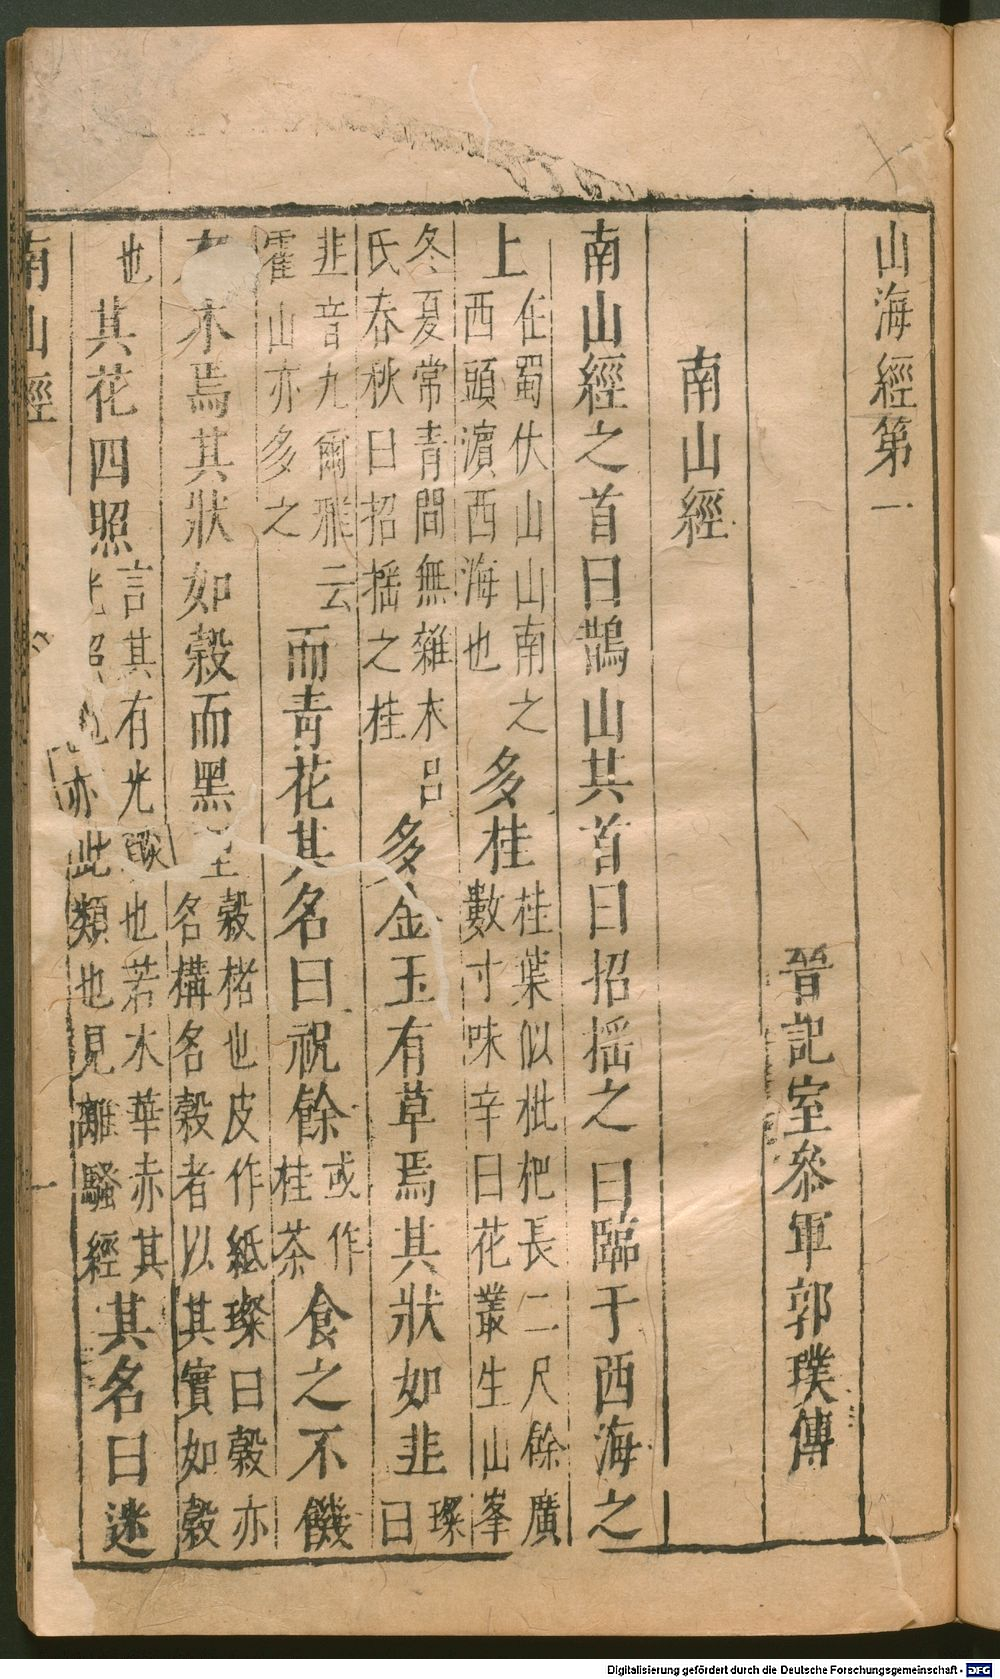 山海經第一
晉記室參軍郭璞傳
南山經
南山經之首曰䧿山其首曰招搖之曰臨于西海之
上在蜀伏山山南之西頭濵西海也多桂桂葉似枇杷長二尺餘廣數寸味辛曰花叢生山峯
冬夏常青間無雜木呂氏春秋曰招搖之桂多金玉有草焉其狀如韭璨曰
韭音九爾雅云霍山亦多之而青花其名曰祝餘或作桂茶食之不饑
木焉其狀如榖而黑榖楮也皮作紙璨曰榖亦名構名榖者以其實如榖
也其花四照言其有光燄也若木華赤其光照亦此類也見離騷經其名曰迷
南山經
一
Digitalisierung gefördert durch die Deutsche Forschungsgemeinschaft - DFG